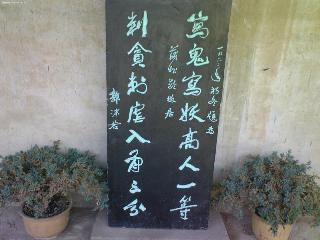 一九六二年秋题为
写鬼写妖高人一等
蒲松龄故居
刺贪刺虐入骨三分
郭沫若